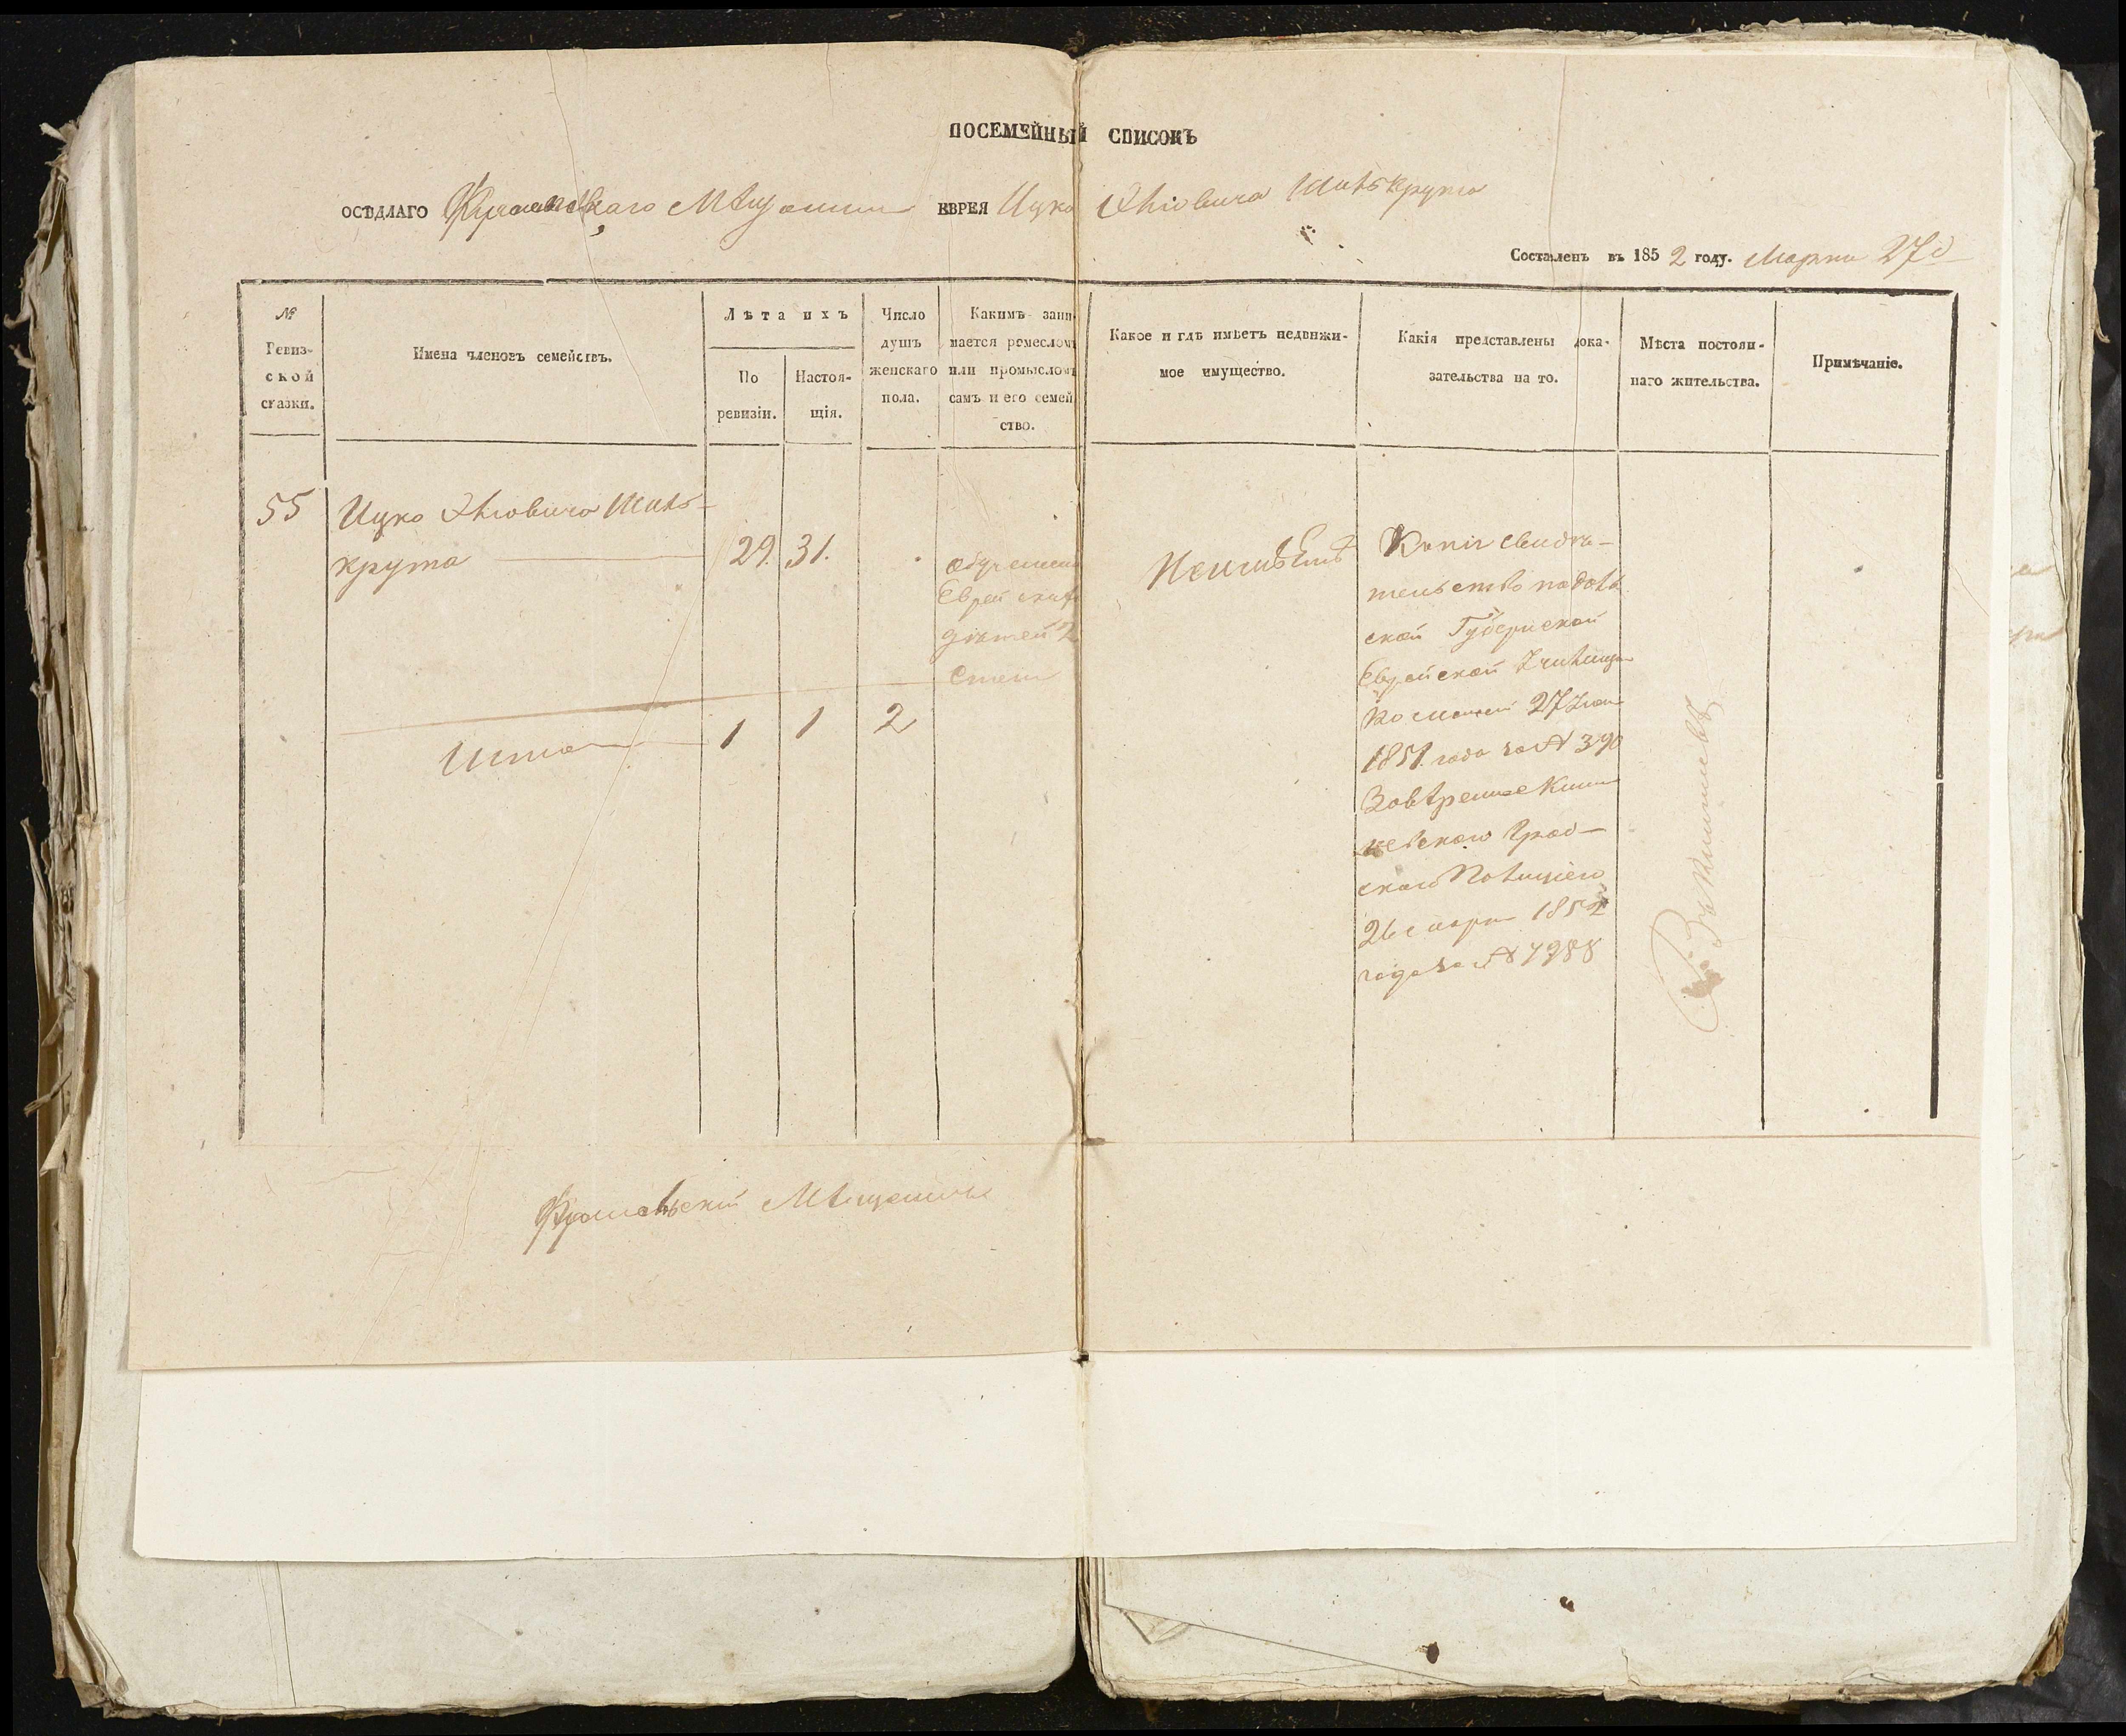 ПОСЕМЕЙНЫЙ СПИСОКЪ
ОСѢДЛАГО Мѣщанина ЕВРЕЯ Ицка
Составленъ въ 1852 году. Марта 27 д
№ Ревиз-ской сказки.
Имена членовъ семействъ.
Лѣта ихъ
По ревизіи.
Настоя-щія.
Число душъ женскаго пола.
Какимъ зани мается ремесломъ или промысломъ самъ и его семей ство.
Какое и гдѣ имѣетъ недвижи-мое имущество.
Какія представлены дока-зательства на то.
Мѣста постоян-наго жительства.
Примѣчаніе.
55 Ицко
крута 29. 31.
обученіемъ
Еврейских
дѣтей
Неимѣетъ
Копія свидѣ-
тельство подоль
ской Губернской
Еврейской Училищн
Комисіи 27
1851 года за № 390
Завѣренное Киши
невскаго Град-
скаго Полиціею
26 марта 1852
года за №
Въ Кишиневѣ
Итого 1 1 2
Мѣщанинъ